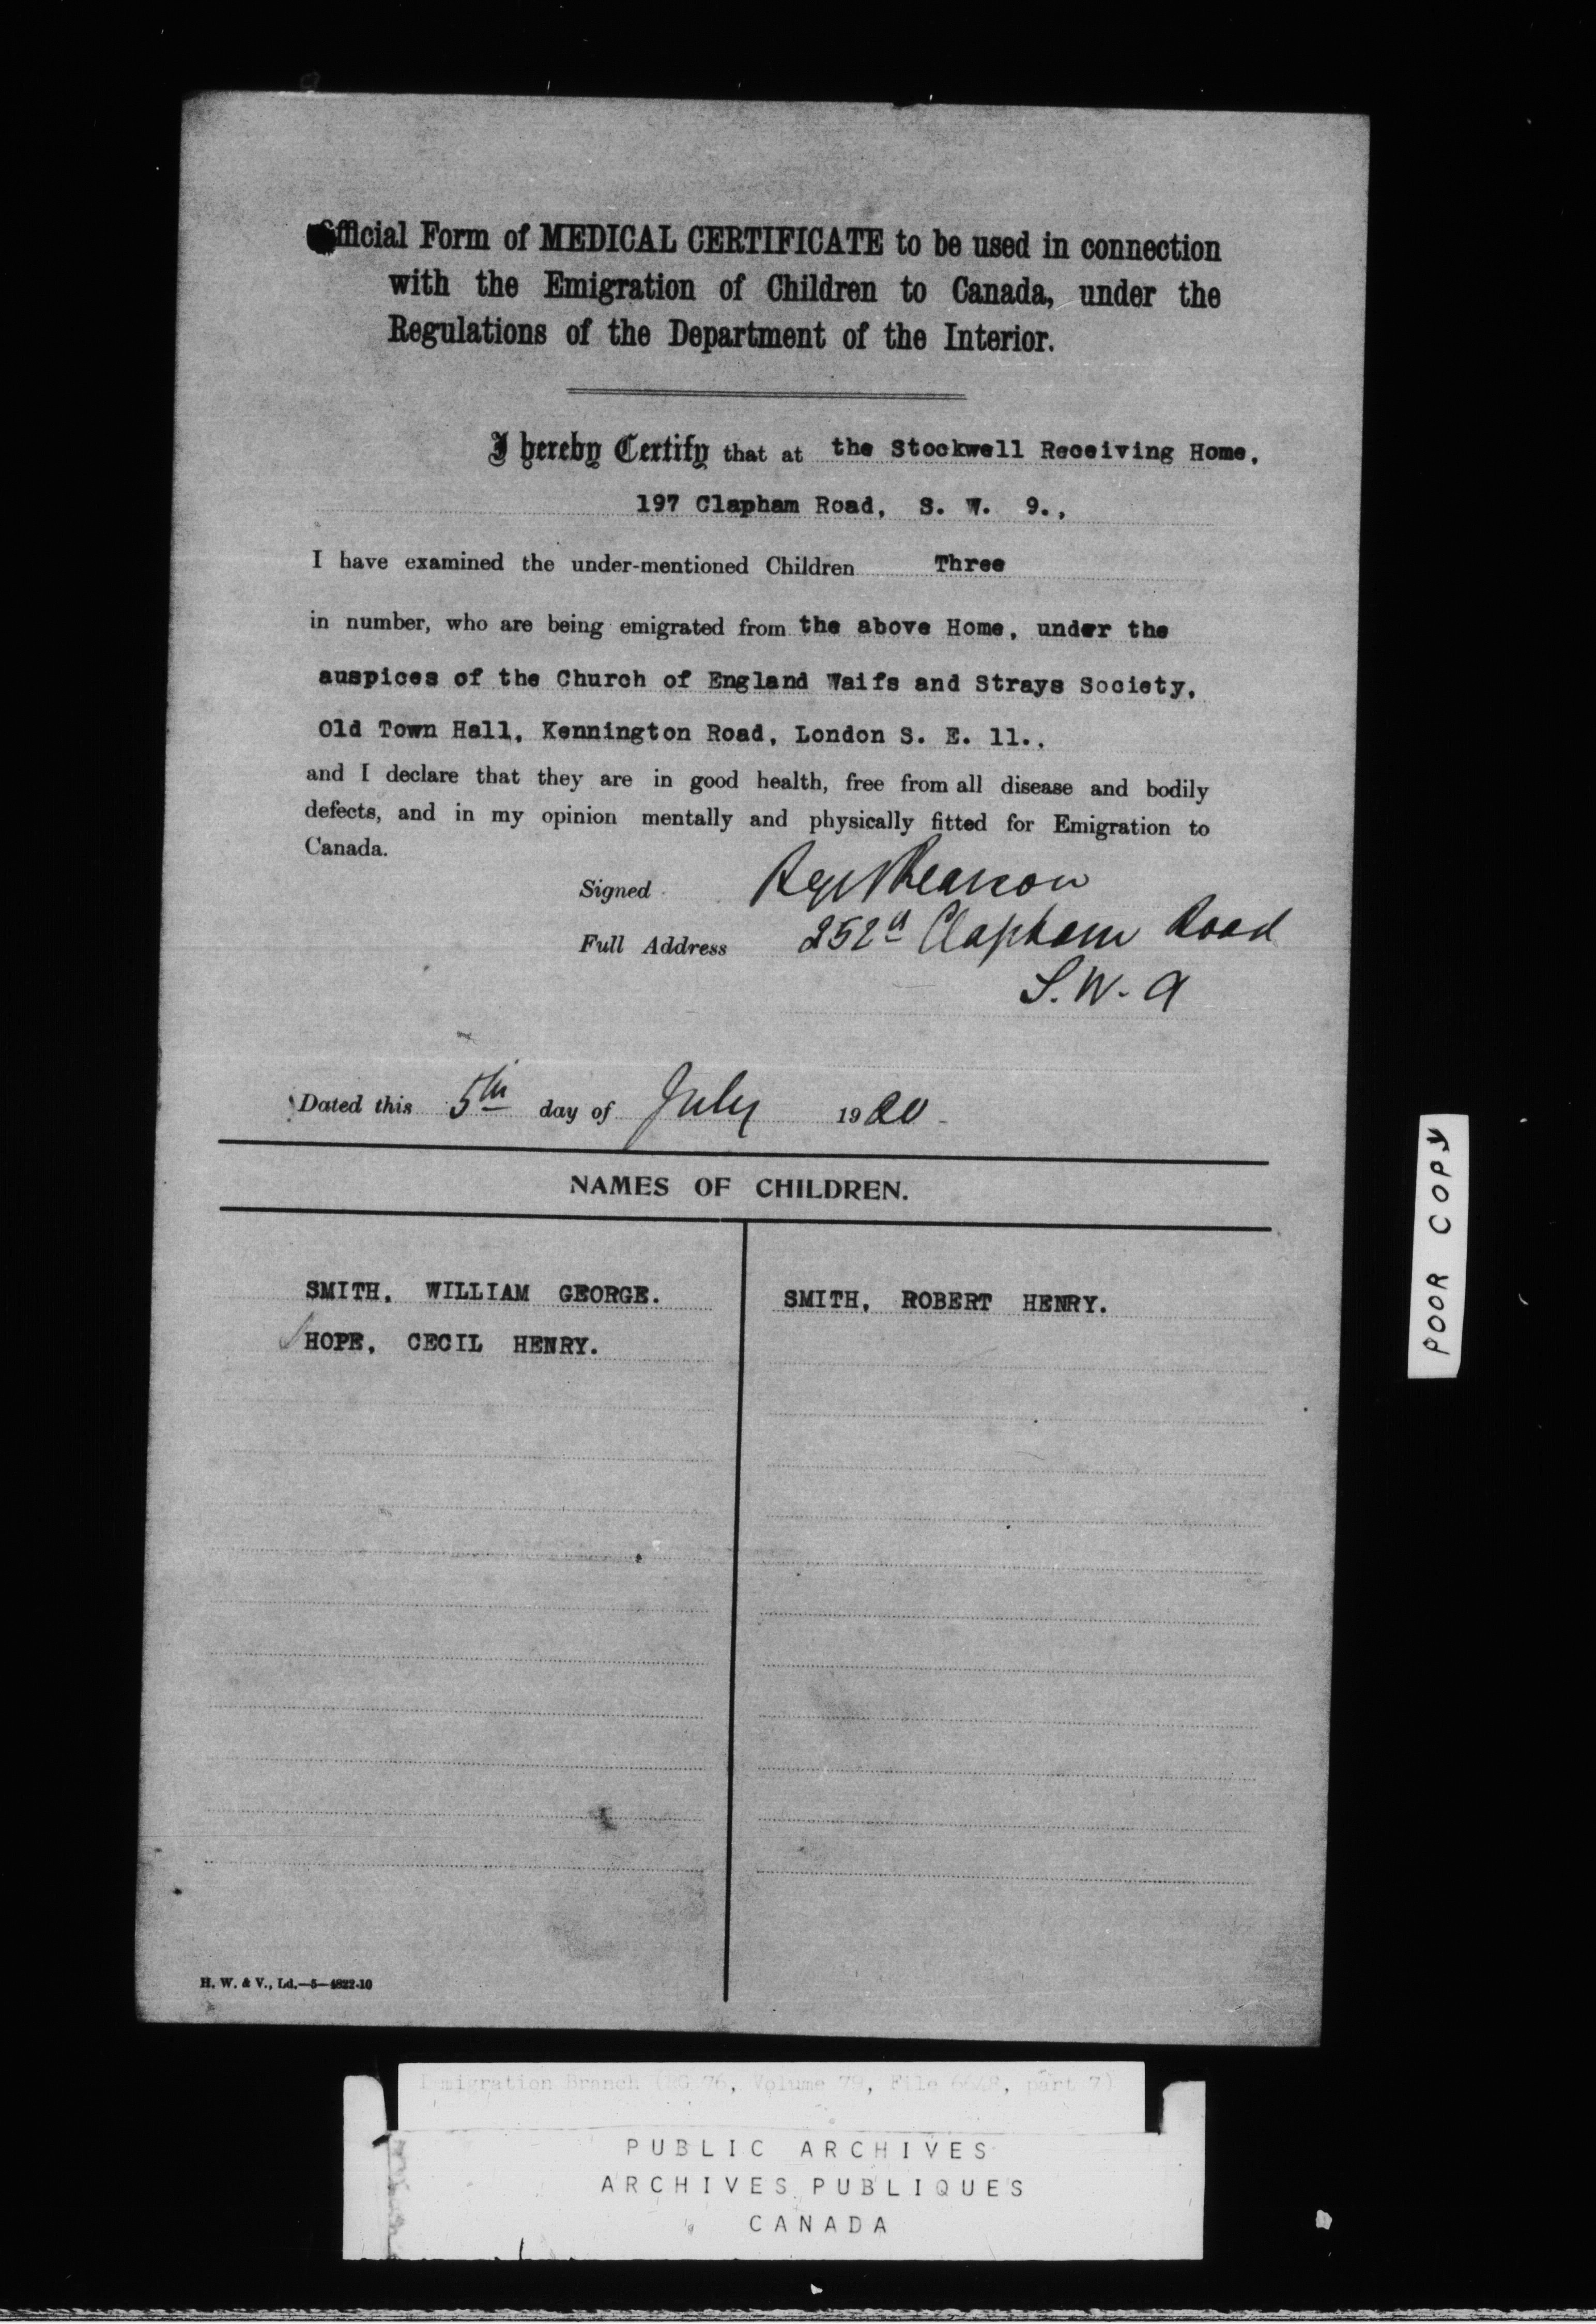 Official Form of MEDICAL CERTIFICATE to be used in connection
with the Emigration of Children to Canada, under the
Regulations of the Department of the Interior.
I hereby Certify that at the Stockwell Receiving Home,
197 Clapham Road, S. W. 9.,
I have examined the under-mentioned Children Three
in number, who are being emigrated from the above Home, under the
auspices of the Church of England Waifs and Strays Society,
Old Town Hall, Kennington Road, London S. E. 11.,
and I declare that they are in good health, free from all disease and bodily
defects, and in my opinion mentally and physically fitted for Emigration to
Canada.
Signed
Full Address 252a Clapham Road
S.W. 9
Dated this 5th day of July 1920
NAMES OF CHILDREN.
SMITH, WILLIAM GEORGE. SMITH, ROBERT HENRY.
HOPE, CECIL HENRY.
H. W. & V., Ld.—5—4822-10
POOR COPY
Immigration Branch (RG 76, Volume 79, File 6648, part 7)
PUBLIC ARCHIVES
ARCHIVES PUBLIQUES
CANADA